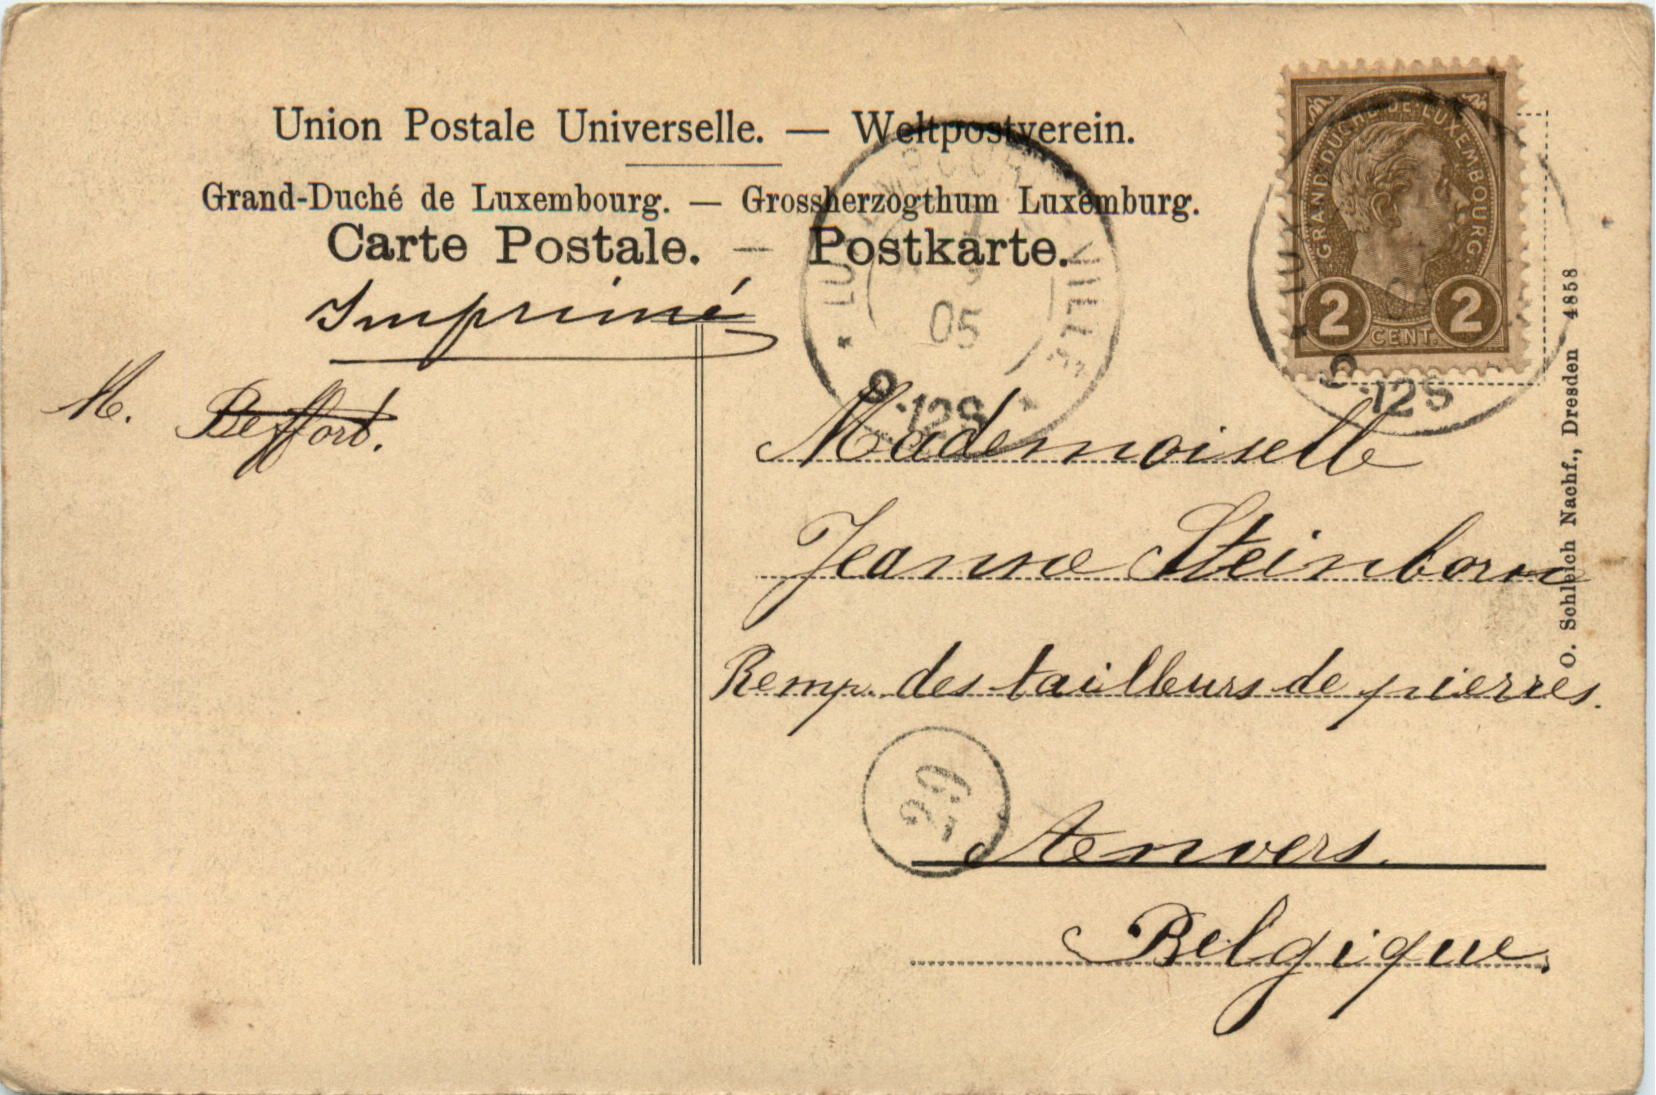 Union Postale Universelle. — Weltpostverein.
Grand-Duché de Luxembourg. — Grossherzogthum Luxemburg.
Carte Postale. — Postkarte.
Imprimé
M. Beffort.
GRAND-DUCHÉ DE LUXEMBOURG
2 CENT. 2
05
9
12S
VILLE
9
12S
Mademoiselle
Jeanne Steinborn
Remp. des tailleurs de pierres.
29
Anvers.
Belgique.
O. Schleich Nachf., Dresden 4858